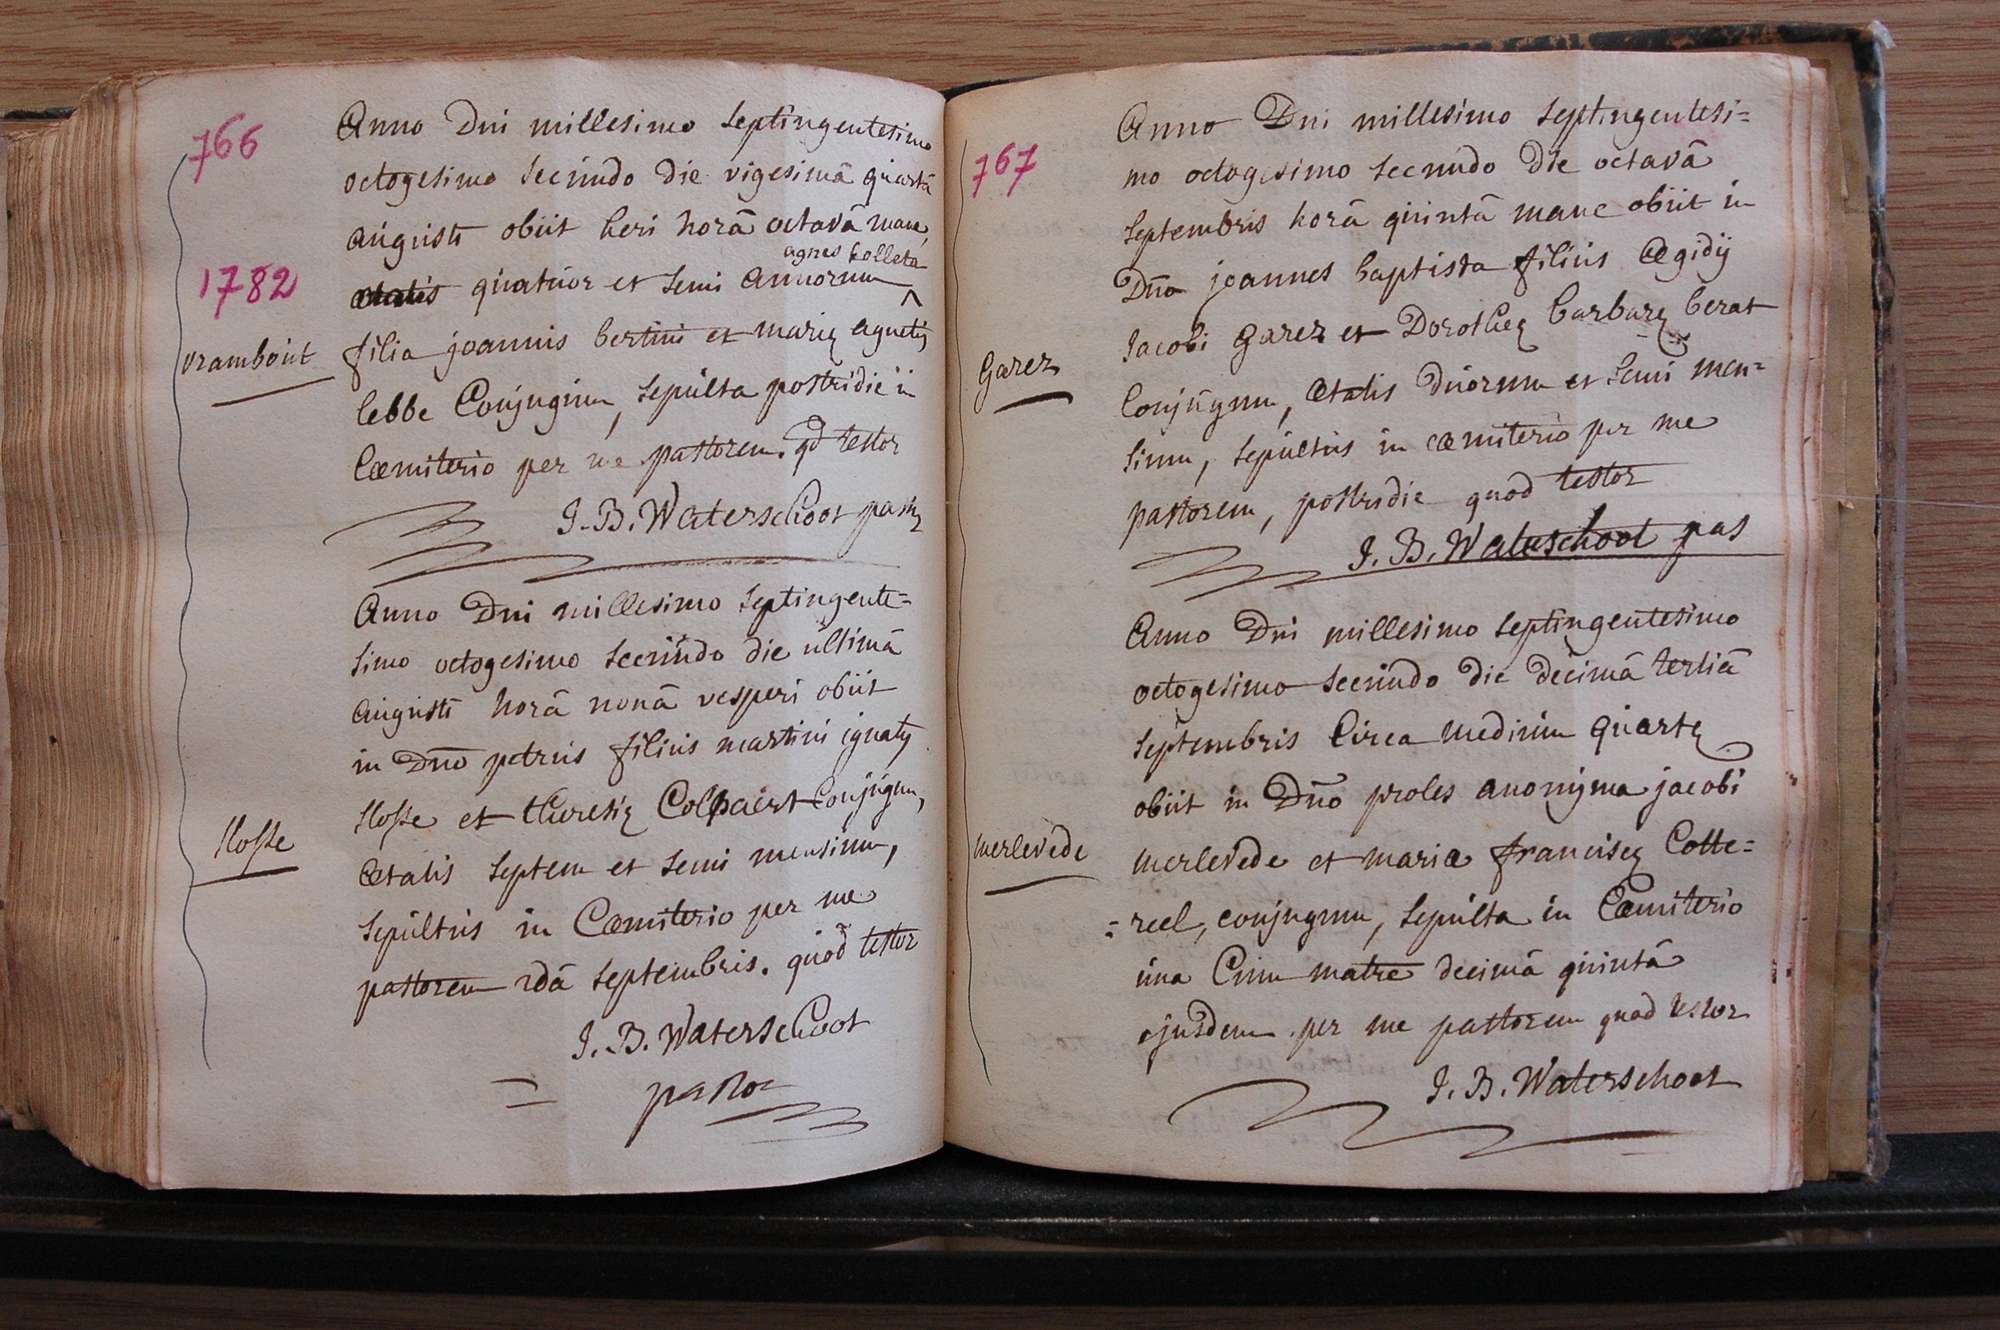 766
Anno Dni millesimo septingentesimo
octogesimo secundo die vigesimâ quartâ
augusti obiit heri horâ octavâ mane,
agnes kolleta
1782
ætatis quatuor et semi annorum ^
vrambout
filia joannis bertini et mariæ agnetis
lebbe Conjugum, sepulta postridie in
Cœmiterio per me pastorem. qd testor
J. B. Waterschoot past
Anno Dni millesimo septingente=
simo octogesimo secundo die ultimâ
augusti horâ nonâ vesperi obiit
in Dno petrus filius martini ignatij
slosse et theresiæ Colpaert Conjugum,
slosse
ætatis septem et semi mensium,
sepultus in Cœmiterio per me
pastorem 2dâ septembris. quod testor
J. B. Waterschoot
pastor
767
Anno Dni millesimo septingentesi=
mo octogesimo secundo die octavâ
septembris horâ quintâ mane obiit in
Dno joannes baptista filius ægidij
jacobi Garez et Dorotheæ barbaræ berat
Garez
Conjugum, ætatis duorum et semi men=
sium, sepultus in cœmiterio per me
pastorem, postridie quod testor
J. B. Waterschoot pas
Anno Dni millesimo septingentesimo
octogesimo secundo die decimâ tertiâ
septembris Circa medium quartæ
obiit in Dno proles anonyma jacobi
merlevede
merlevede et maria franciscæ Cotte=
=reel, conjugum, sepulta in Cœmiterio
una Cum matre decimâ quintâ
ejusdem per me pastorem quod testor
J. B. Waterschoot